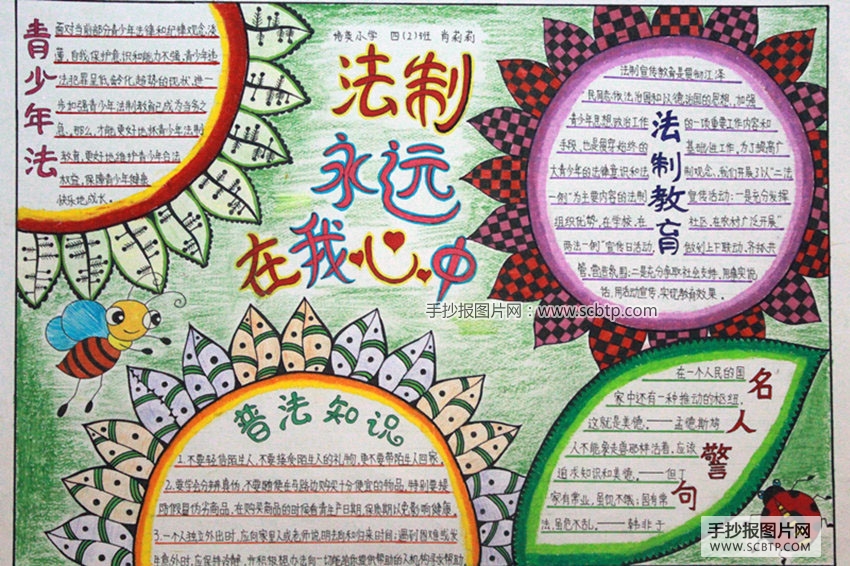 培英小学 四(2)班 肖莉莉
法制
永远
在我心中
青少年法
面对当前部分青少年法律和护律观念淡
薄,自我保护意识和能力不强,青少年违
法犯罪呈低龄化趋势的现状,进一
步加强青少年法制教育已成为当务之
急。那么,才能更好地抓青少年法制
教育,更好地维护青少年合法
权益,保障青少年健康
快乐地成长。
法制教育
法制宣传教育是贯彻江泽
民同志依法治国和以德治国的思想,加强
青少年思想政治工作的一项重要工作内容和
手段,也是最终的基础性工作,为了提高广
大青少年的法律意识和法制观念,我们开展了以“二法
一例”为主要内容的法制宣传活动:一是充分发挥
组织优势,在学校、在社区、在农村广泛开展“
两法一例”宣传日活动,做到上下联动、齐抓共
管、营造氛围;二是充分争取社会支持,用事实说
话,用活动宣传,实现教育效果。
手抄报图片网:www.scbtp.com
普法知识
1.不要轻信陌生人,不要接受陌生人的礼物,更不要带陌生人回家
2.要学会分辨真伪,不要随便在马路边购买十分便宜的物品,特别要提
防假冒伪劣商品,在购买商品的时候看清生产日期,保质期以免影响健康。
3.一个人独立外出时,应向家里人或老师说明去向和归来时间;遇到困难或发
生意外时,应保持冷静,并积极想办法向一切能给你提供帮助的人机构寻求帮助
名人警句
在一个人民的国
家中还有一种推动的枢纽,
这就是美德。——孟德斯鸠
人不能象走兽那样活着,应该
追求知识和美德。——但丁
家有常业,虽饥不饿;国有常
法,虽危不乱。——韩非子
手抄报图片网
WWW.SCBTP.COM